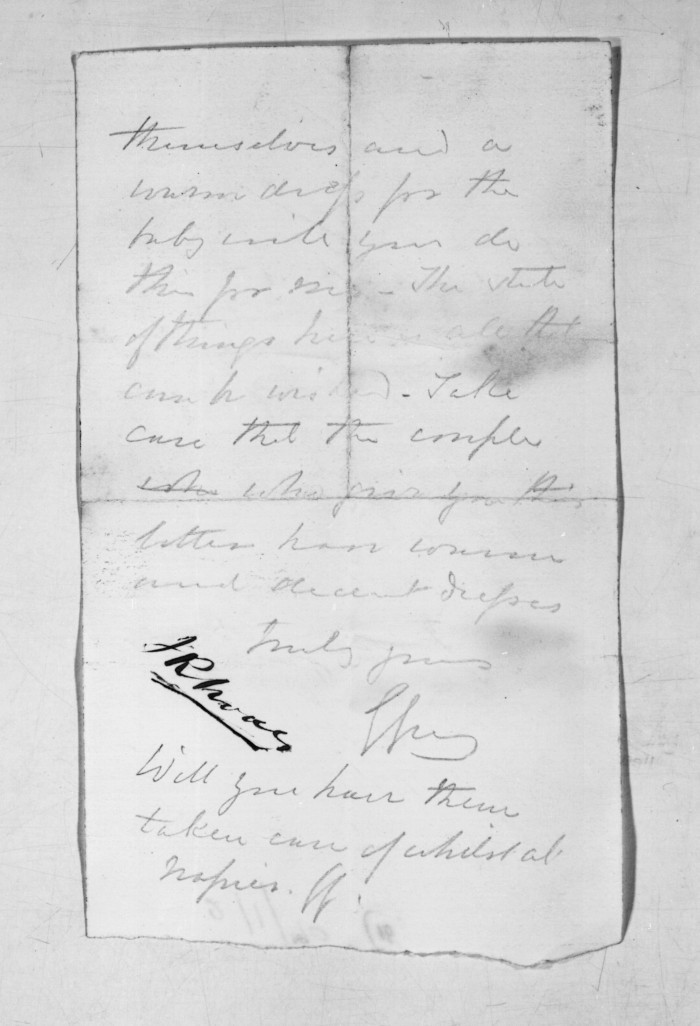 themselves and a
warm dress for the
baby will you do
this for me. - The state
of things here is all that
can be wished. - Take
care that the couple
who who give you this
letter have warm
and decent dresses
truly yours
J Rhodes
Will you have them
taken care of whilst at
Napier. GG.